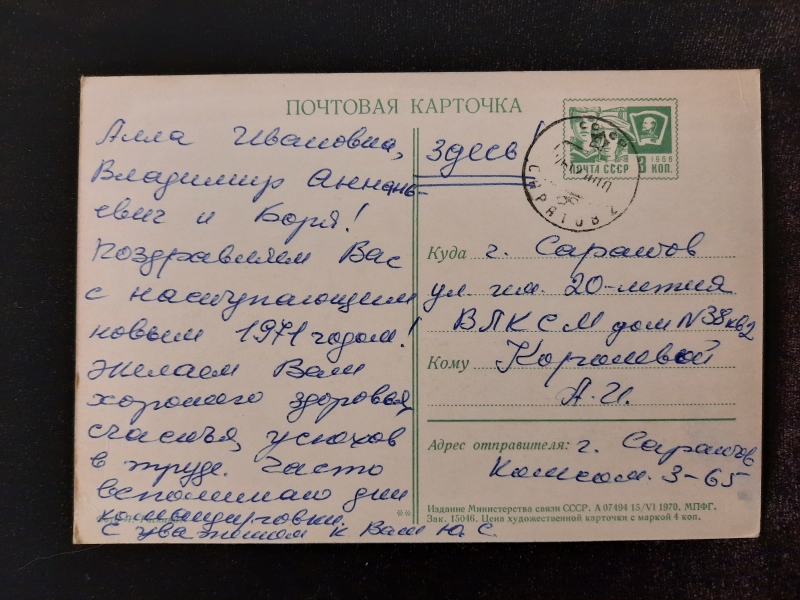 ПОЧТОВАЯ КАРТОЧКА
Алла Ивановна,
Владимир Аннань-
евич и Боря!
Поздравляем Вас
с наступающим
новым 1971 годом!
Желаем Вам
хорошего здоровья,
счастья, успехов
в труде. Часто
вспоминаю дни
командировки.
С уважением к Вам Ю. С.
здесь!
1966
ПОЧТА СССР
КОП.
СССР
САРАТОВ 2
Куда г. Саратов
ул. им. 20-летия
ВЛКСМ дом N 38 кв 2
Кому Королевой
А. И.
Адрес отправителя: г. Саратов
Комсом. 3-65
Издание Министерства связи СССР. А 07494 15/VI 1970. МПФГ.
Зак. 15046. Цена художественной карточки с маркой 4 коп.
**